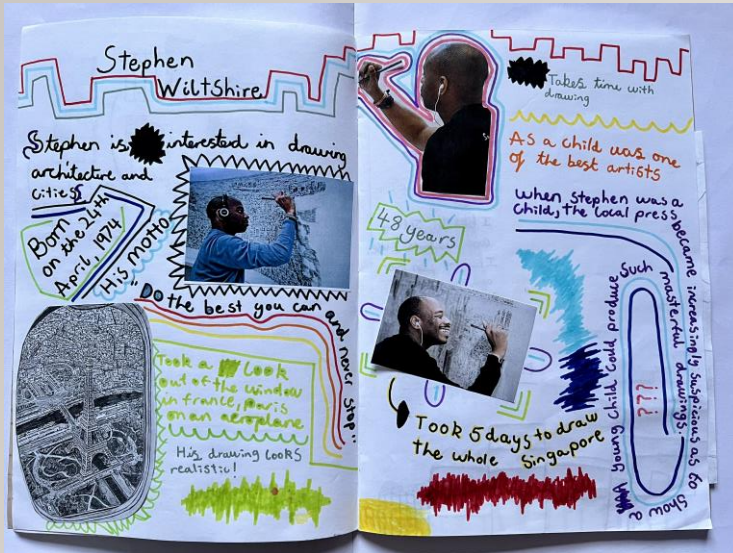 Stephen
Wiltshire
Stephen is interested in drawing
architecture and
cities
Born
on the 24th
April, 1974
His motto
"Do the best you can and never stop"
Took a look
out of the window
in france, Paris
on an aeroplane
His drawing looks
realistic!
Takes time with
drawing
As a child was one
of the best artists
when Stephen was a
Child, the local press became increasingly suspicious as to
how a
young child could produce
Such
masterful drawings.
???
48 years
Took 5 days to draw
the whole Singapore